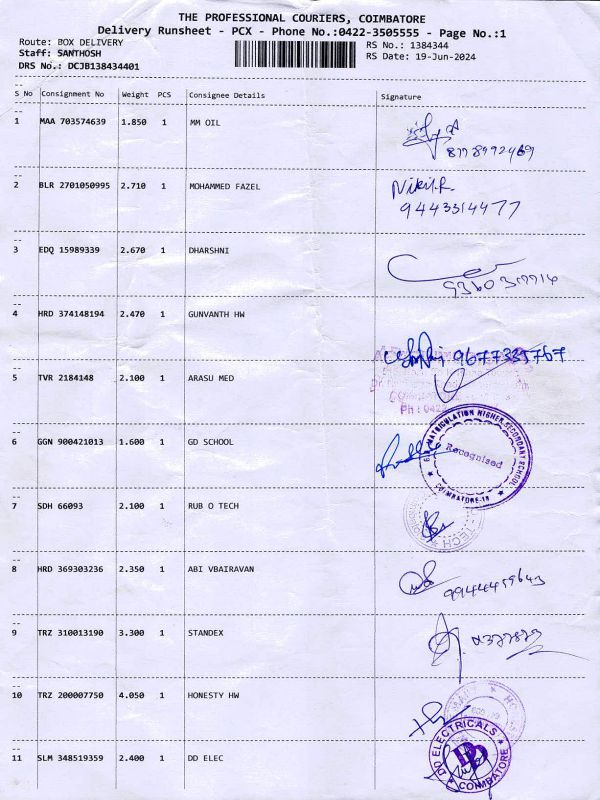 THE PROFESSIONAL COURIERS, COIMBATORE
Delivery Runsheet - PCX - Phone No.:0422-3505555 - Page No.:1
Route: BOX DELIVERY
RS No.: 1384344
Staff: SANTHOSH
RS Date: 19-Jun-2024
DRS No.: DCJB138434401
S No Consignment No Weight PCS Consignee Details Signature
1 MAA 703574639 1.850 1 MM OIL
2 BLR 2701050995 2.710 1 MOHAMMED FAZEL Nikil.R
9443314477
3 EDQ 15989339 2.670 1 DHARSHNI
4 HRD 374148194 2.470 1 GUNVANTH HW
9677335767
5 TVR 2184148 2.100 1 ARASU MED
Ph : 0422
6 GGN 900421013 1.600 1 GD SCHOOL
MATRICULATION HIGHER SECONDARY SCHOOL
Recognised
COIMBATORE-18
7 SDH 66093 2.100 1 RUB O TECH
TECH
8 HRD 369303236 2.350 1 ABI VBAIRAVAN
9944459643
9 TRZ 310013190 3.300 1 STANDEX
10 TRZ 200007750 4.050 1 HONESTY HW
11 SLM 348519359 2.400 1 DD ELEC
DD ELECTRICALS
DD
COIMBATORE